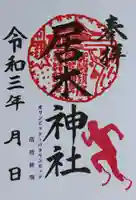 奉拝
居木神社
オリンピック・パラリンピック
令和三年 月 日